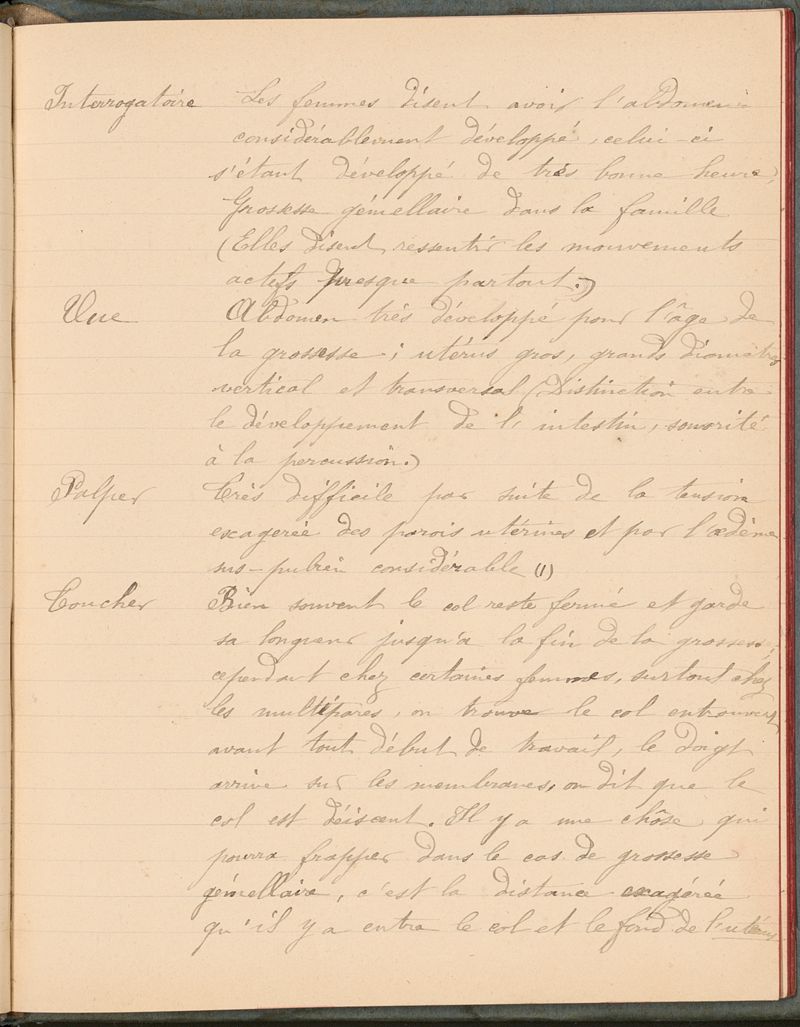 Interrogatoire Les femmes disent avoir l'abdomen
considérablement développé, celui-ci
s'étant développé de très bonne heure,
Grossesse gémellaire dans la famille
(Elles disent ressentir les mouvements
actifs presque partout.)
Vue Abdomen très développé pour l'âge de
la grossesse ; utérus gros, grands diamètres
vertical et transversal (Distinction entre
le développement de l'intestin, sonorité
à la percussion.)
Palper Très difficile par suite de la tension
exagérée des parois utérines et par l'œdème
sus-pubien considérable (1)
Toucher Bien souvent le col reste fermé et garde
sa longueur jusqu'à la fin de la grossesse,
cependant chez certaines femmes, surtout chez
les multipares, on trouve le col entrouvert
avant tout début de travail, le doigt
arrive sur les membranes, on dit que le
col est déiscent. Il y a une chôse qui
pourra frapper dans le cas de grossesse
gémellaire, c'est la distance exagérée
qu'il y a entre le col et le fond de l'utérus